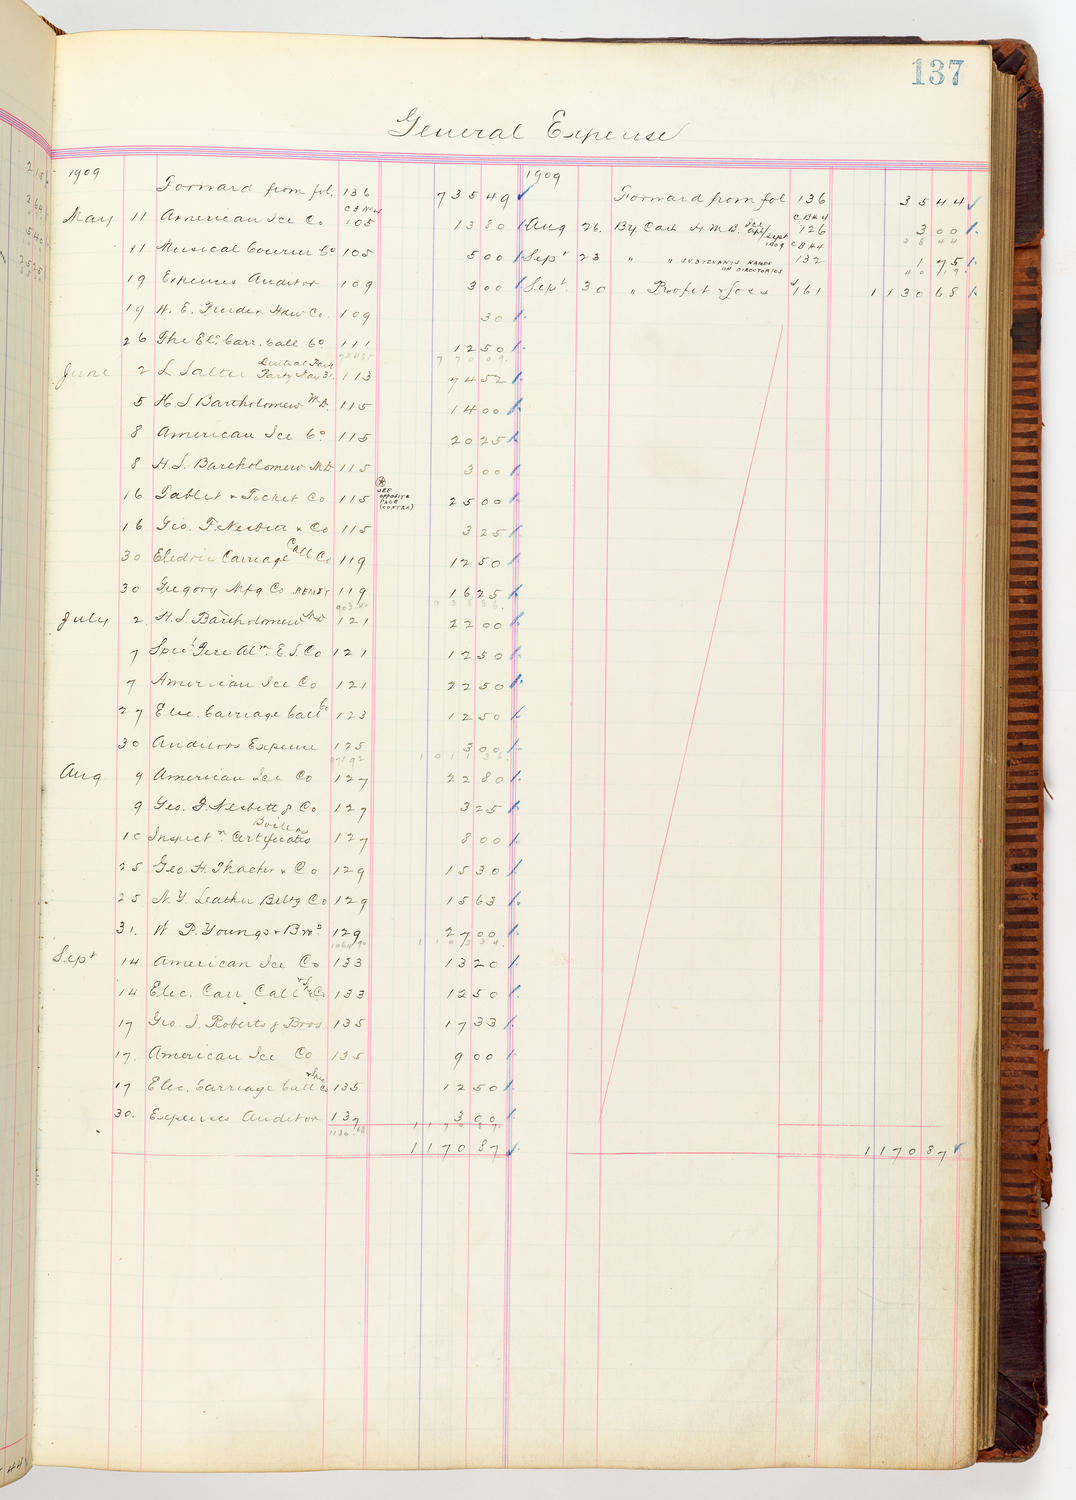 137
General Expense
1909
Forward from fol. 136 735 49
C B No 4
May 11 American Ice Co 105 13 80
11 Musical Courier Co 105 5 00
19 Expenses Auditor 109 3 00
19 H. E. Hdw Co. 109 30
26 The El. Carr. Call Co 111 12 50
770 09
June 2 L Salter Central Park Party May 31. 113 74 52
5 H. S. Bartholomew M.D. 115 14 00
8 American Ice Co. 115 20 25
8 H. S. Bartholomew M.D. 115 3 00
16 Tablet & Ticket Co 115 25 00
* SEE OPPOSITE PAGE (CONTRA)
16 Geo. F. Nesbitt & Co 115 3 25
30 Electric Carriage Call Co 119 12 50
30 Gregory Mfg Co 119 16 25
938 86
July 2. H. S. Bartholomew M.D. 121 22 00
7 Fire Alm. E. S. Co 121 12 50
7 American Ice Co 121 22 50
27 Elec. Carriage Call Co 123 12 50
30 Auditors Expense 125 3 00
1011 36
Aug 9 American Ice Co 127 22 80
9 Geo. F. Nesbitt & Co 127 3 25
10 Inspectn. Certificates Boilers 127 8 00
25 Geo. H. Thacher & Co 129 15 30
25 N. Y. Leather Beltg Co 129 15 63
31. W P. Youngs & Bros 129 27 00
1103 34
Sept 14 American Ice Co 133 13 20
14 Elec. Carr Call Co 133 12 50
17 Geo. J. Roberts & Bros. 135 17 33
17. American Ice Co 135 9 00
17 Elec. Carriage Call Co 135 12 50
30. Expenses Auditor 137 3 00
1170 87
1170 87
1909
Forward from fol 136 35 44
C. B. No 4
Aug 26. By Cash H M. B. Sept 1909 126 3 00
38 44
C B #4
Sept 23 " " SUBTENANTS NAMES ON DIRECTORIES 132 1 75
40 19
Sept. 30 " Profit & Loss 161 1130 68
1170 87